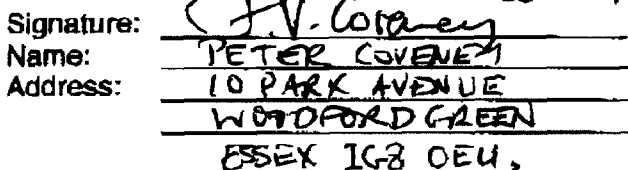 Signature: P.V. Coveney
Name: PETER COVENEY
Address: 10 PARK AVENUE
WOODFORD GREEN
ESSEX IG8 0EU.